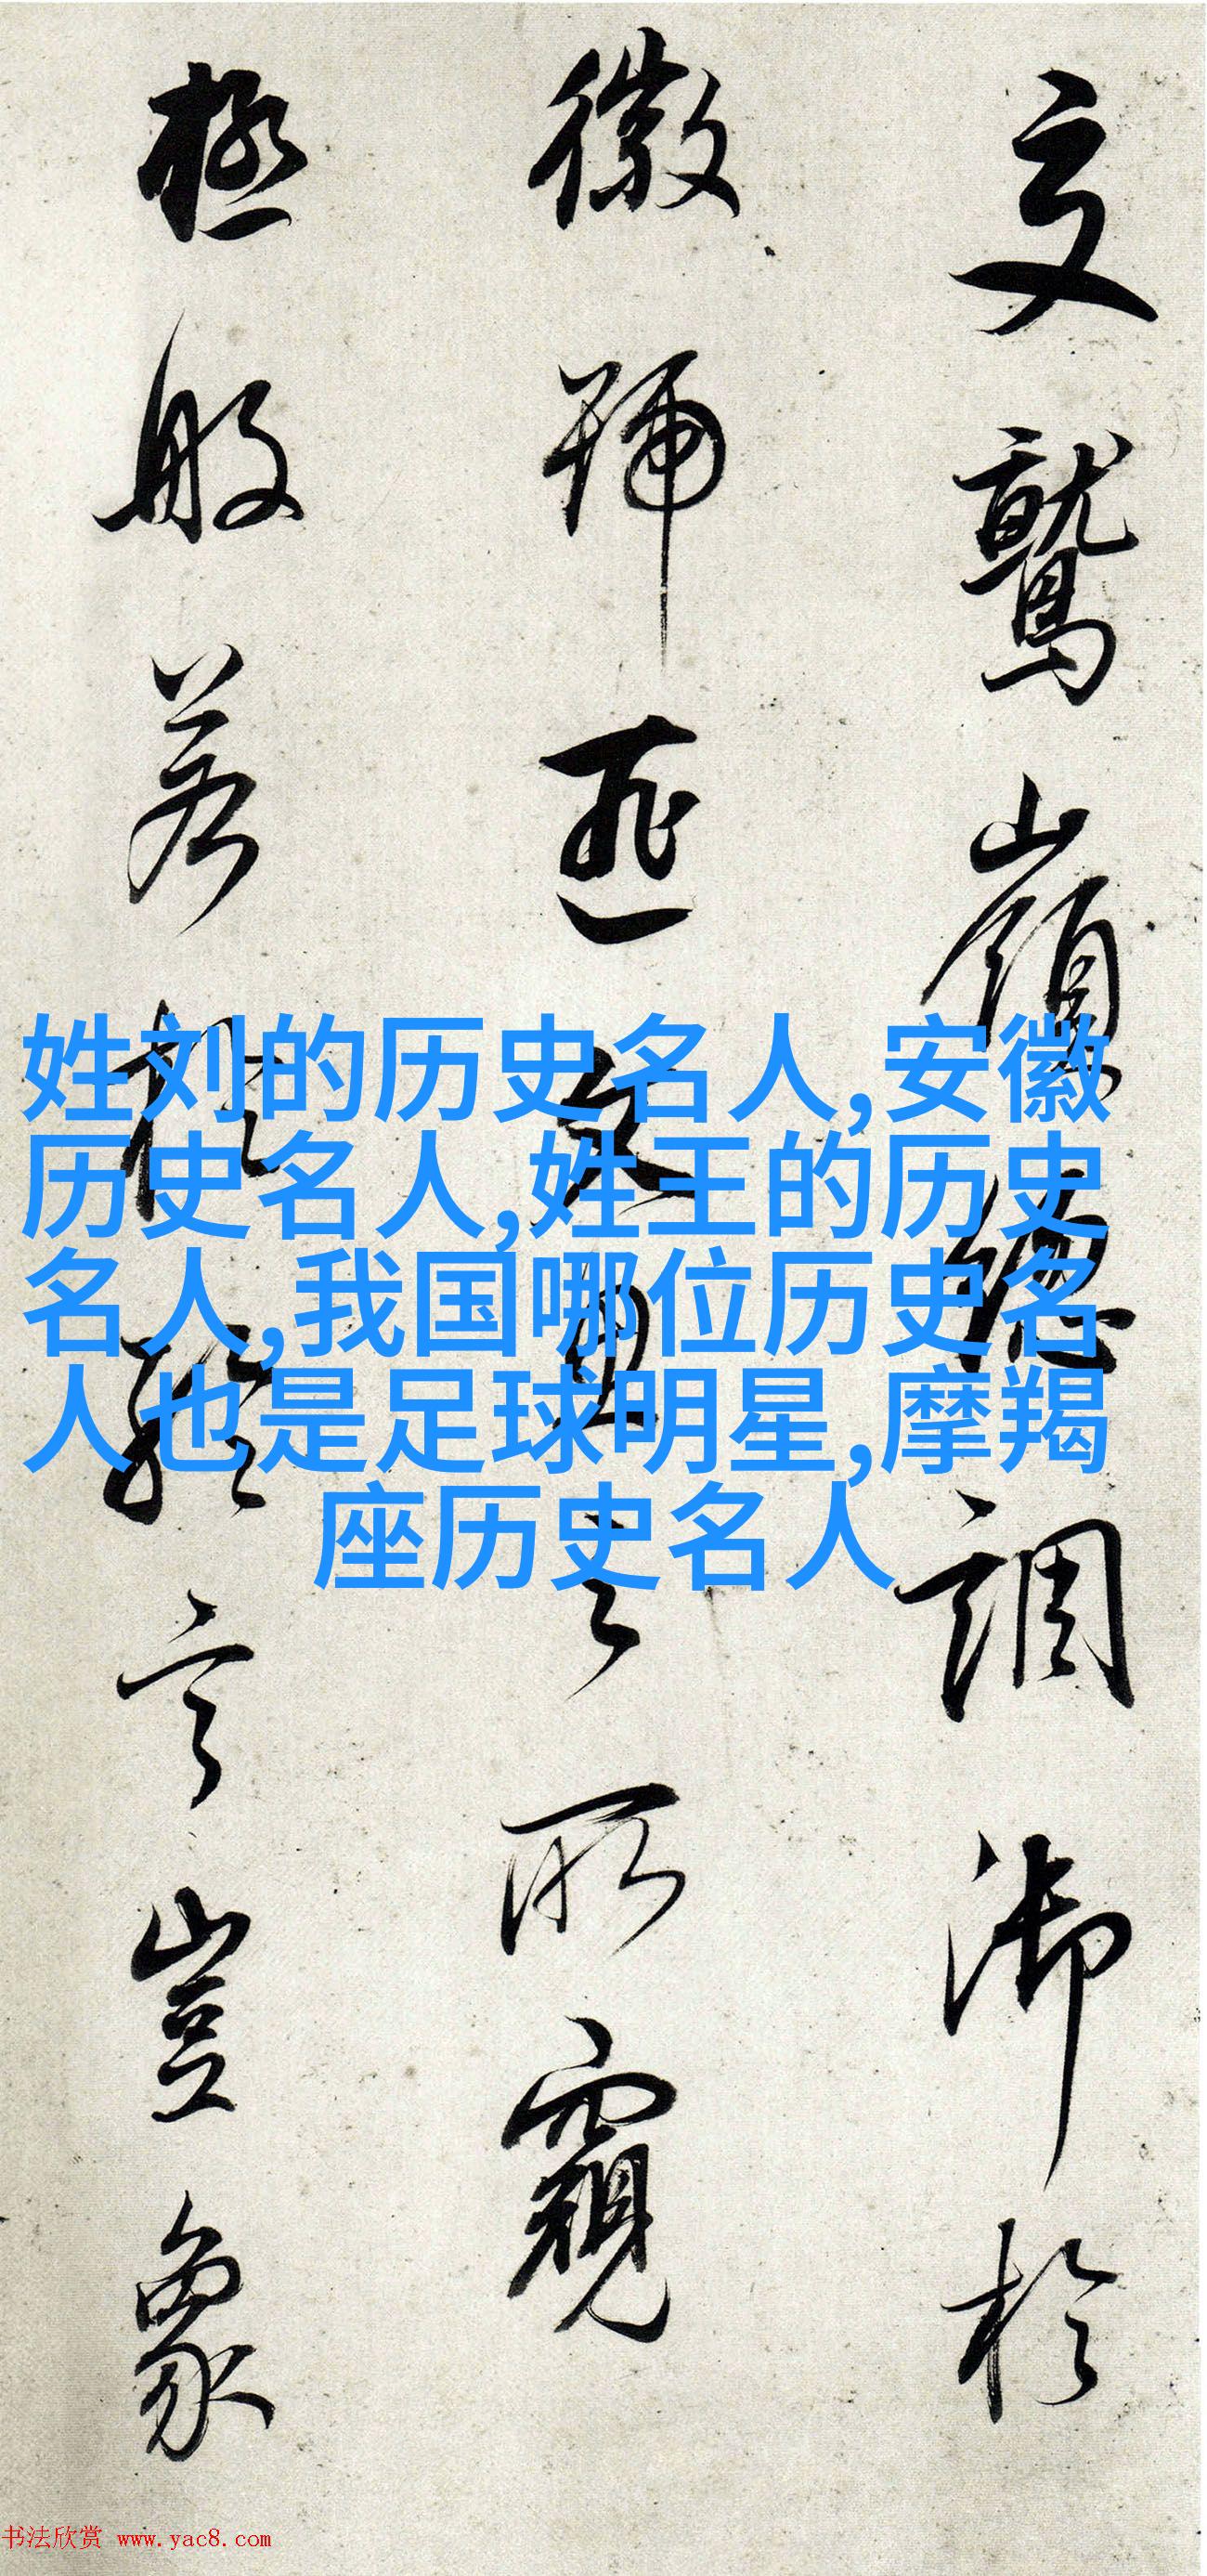 鷲嶺總調御於
徽號匪文之所窺
極般若言豈象
姓刘的历史名人,安徽
历史名人,姓王的历史
名人,我国哪位历史名
人也是足球明星,摩羯
座历史名人
书法欣赏 www.yac8.com